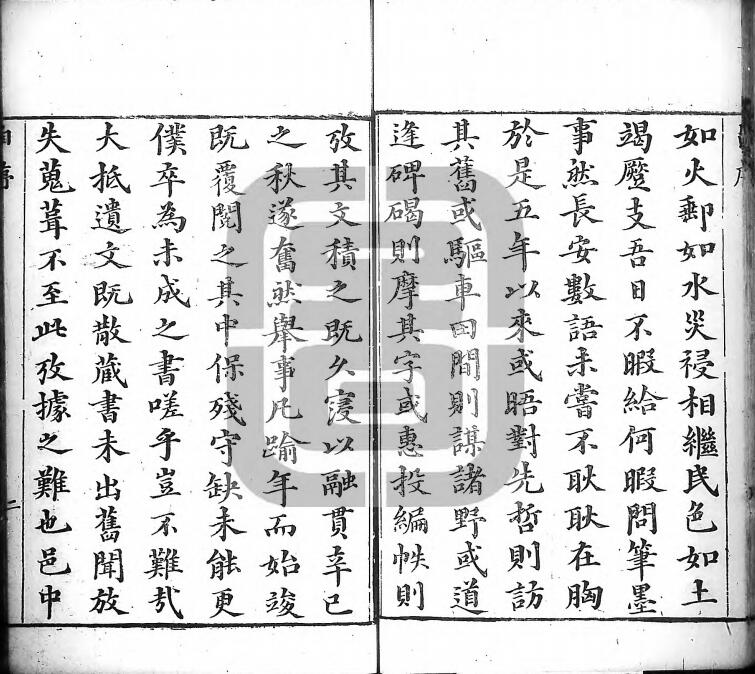 如火郵如水災祲相繼民色如土
竭蹷支吾日不暇給何暇問筆墨
事然長安數語未嘗不耿耿在胸
於是五年以來或晤對先哲則訪
其舊或驅車田間則謀諸野或道
逢碑碣則摩其字或惠投編帙則
攷其文積之既久寖以融貫辛巳
之秋遂奮然舉事凡踰年而始竣
既覆閱之其中保殘守缺未能更
僕卒為未成之書嗟乎豈不難哉
大抵遺文既散藏書未出舊聞放
失蒐葺不至此攷據之難也邑中
自序
二